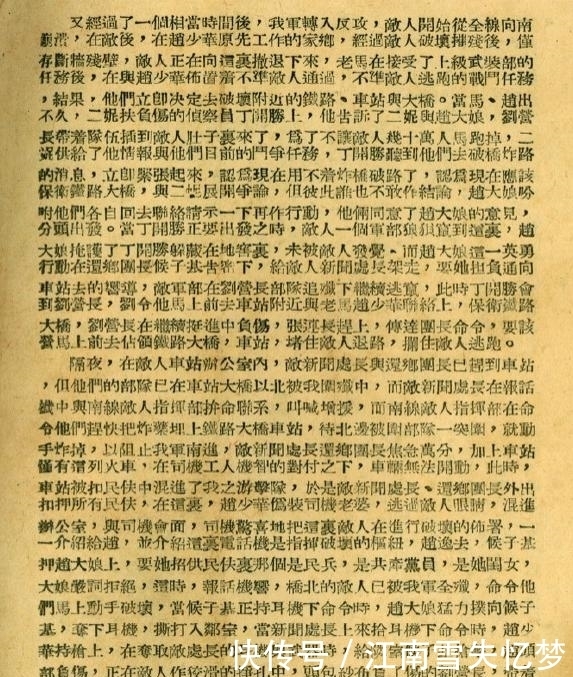 又經過了一個相當時間後，我軍轉入反攻，敵人開始從全線向南
崩潰，在敵後，在趙少華原先工作的家鄉，經過敵人破壞摧殘後，僅
存斷墻殘壁，敵人正在向這裏撤退下來，老馬在接受了上級武裝部的
任務後，在與趙少華佈置着不準敵人通過，不準敵人逃跑的戰鬥任務
，結果，他們立卽决定去破壞附近的鐵路、車站與大橋。當馬、趙出
不久，二妮扶負傷的偵察員丁開勝上，他告訴了二妮與趙大娘，劉營
長帶着隊伍插到敵人肚子裏來了，爲了不讓敵人幾十萬人馬跑掉，二
妮供給了他情報與他們目前的鬥爭任務，丁開勝聽到他們去破橋炸路
的消息，立卽緊張起來，認爲現在用不着炸橋破路了，認爲現在應該
保衛鐵路大橋，與二妮展開爭論，但彼此誰也不敢作結論，趙大娘吩
咐他們各自回去聯絡請示一下再作行動，他倆同意了趙大娘的意見，
分頭出發。當丁開勝正要出發之時，敵人一個軍部狼狽竄到這裏，趙
大娘掩護了丁開勝躲藏在地窖裏，未被敵人發覺。而趙大娘這一英勇
行動在還鄉團長候子基告密下，給敵人新聞處長架走，要她担負通向
車站去的嚮導，敵軍在劉營長部隊追殲下繼續逃竄，此時丁開勝會
到劉營長，劉令他馬上前去車站附近與老馬趙少華聯絡上，保衛鐵路
大橋，劉營長在繼續挺進中負傷，張連長趕上，傳達團長命令，要該
營馬上前去佔領鐵路大橋，車站，堵住敵人退路，攔住敵人逃跑。
隔夜，在敵人車站辦公室內，敵新聞處長與還鄉團長已趕到車站
，但他們的部隊已在車站大橋以北被我圍殲中，而敵新聞處長在報話
機中與南線敵人指揮部拚命聯系，叫喊增援，而南線敵人指揮部在命
令他們趕快把炸藥埋上鐵路大橋車站，待北邊被圍部隊一突圍，就動
手炸掉，以阻止我軍南進，敵新聞處長還鄉團長焦急萬分，加上車站
僅有這列火車，在司機工人機智的對付之下，車輛無法開動，此時，
車站被扣民伕中混進了我之游擊隊，於是敵新聞處長、還鄉團長外出
扣押所有民伕，在這裏，趙少華僞裝司機老婆，逃過敵人眼睛，混進
辦公室，與司機會面，司機驚喜地把這裏敵人在進行破壞的佈署，一
一介紹給趙，並介紹這裏電話機是指揮破壞的樞紐，趙逸去，候子基
押趙大娘上，要她招供民伕裏那個是民兵，是共產黨員，是她閨女，
大娘嚴詞拒絕，這時，報話機響，橋北的敵人已被我軍全殲，命令他
們馬上動手破壞，當候子基正持耳機下命令時，趙大娘猛力撲向候子
基，奪下耳機，撕打入鄰室，當新聞處長上來拾耳機下命令時，趙少
華持槍上，在奪取敵處長的
快传号 / 江南雪失忆梦